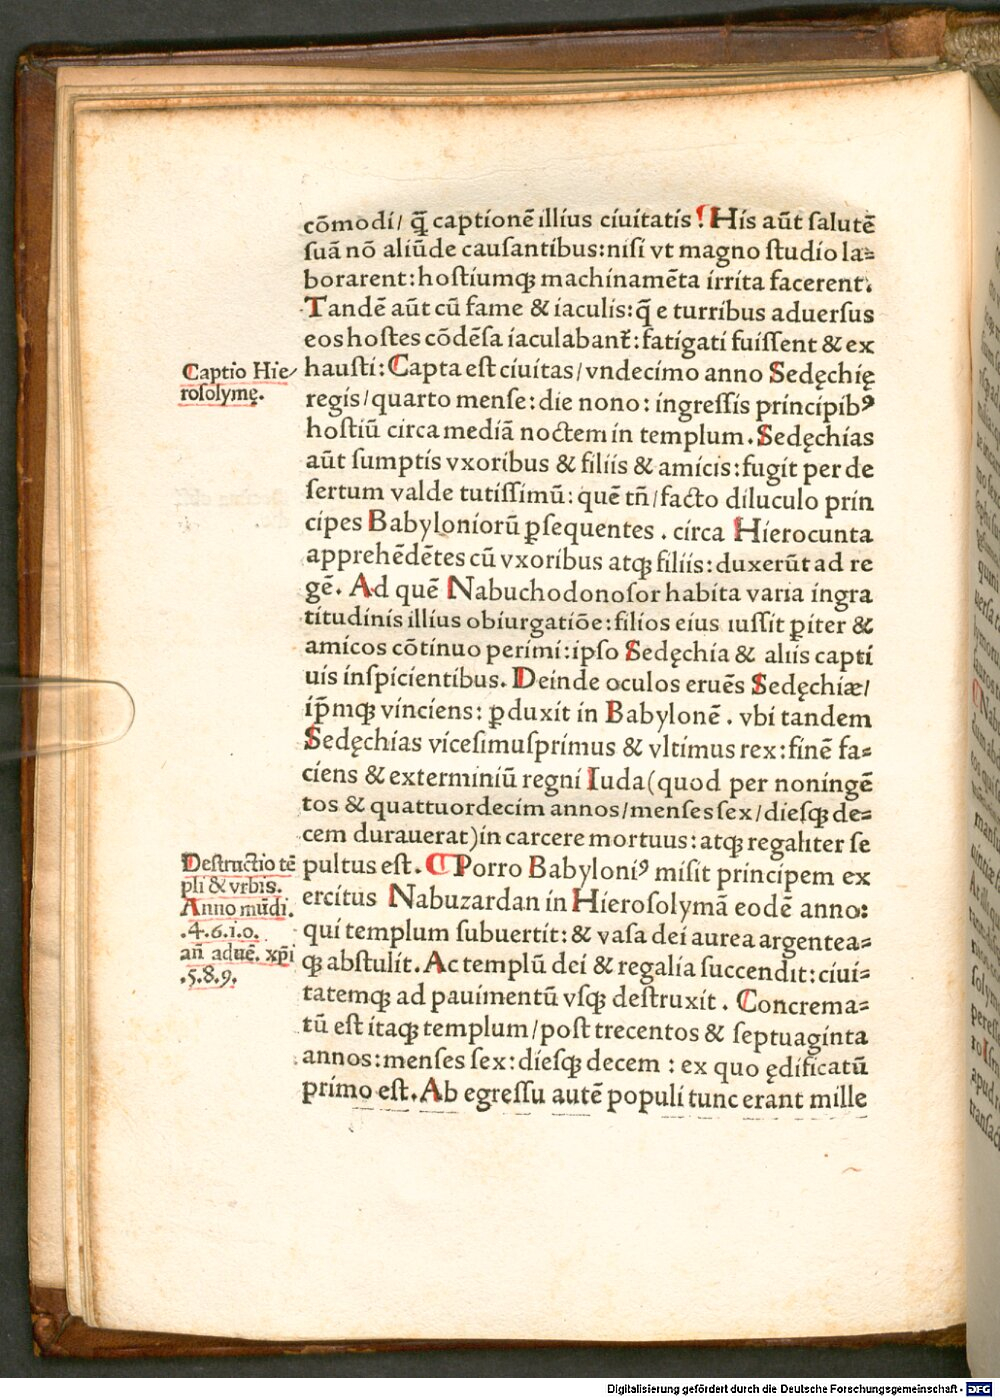 cōmodi/ q̄ captionē illius ciuitatis! His aūt salutē
suā nō aliūde causantibus:nisi vt magno studio la=
borarent:hostiumqꝫ machinamēta irrita facerent.
Tandē aūt cū fame & iaculis:q̄ e turribus aduersus
eos hostes cōdēsa iaculabant᷑:fatigati fuissent & ex
hausti:Capta est ciuitas/vndecimo anno Sedęchię
regis/quarto mense:die nono: ingressis principibꝰ
hostiū circa mediā noctem in templum.Sedęchias
aūt sumptis vxoribus & filiis & amicis:fugit per de
sertum valde tutissimū: quē tn̄/facto diluculo prin
cipes Babyloniorū ꝑsequentes . circa Hierocunta
apprehēdētes cū vxoribus atqꝫ filiis:duxerūt ad re
gē. Ad quē Nabuchodonosor habita varia ingra
titudinis illius obiurgatiōe:filios eius iussit ꝑiter &
amicos cōtinuo perimi:ipso Sedęchia & aliis capti
uis inspicientibus. Deinde oculos eruēs Sedęchiæ/
ip̄mqꝫ vinciens: ꝑduxit in Babylonē . vbi tandem
Sedęchias vicesimusprimus & vltimus rex:finē fa=
ciens & exterminiū regni Iuda(quod per noningē
tos & quattuordecim annos/menses sex/diesqꝫ de=
cem durauerat)in carcere mortuus:atqꝫ regaliter se
pultus est. ¶ Porro Babyloniꝰ misit principem ex
ercitus Nabuzardan in Hierosolymā eodē anno:
qui templum subuertit:& vasa dei aurea argentea=
qꝫ abstulit. Ac templū dei & regalia succendit:ciui=
tatemqꝫ ad pauimentū vsqꝫ destruxit. Concrema=
tū est itaqꝫ templum/post trecentos & septuaginta
annos:menses sex:diesqꝫ decem : ex quo ędificatū
primo est. Ab egressu autē populi tunc erant mille
Captio Hie/
rosolymę.
Destructio tē
pli & vrbis.
Anno mūdi.
.4.6.1.0.
an̄ aduē. xp̄i
.5.8.9.
Digitalisierung gefördert durch die Deutsche Forschungsgemeinschaft - DFG